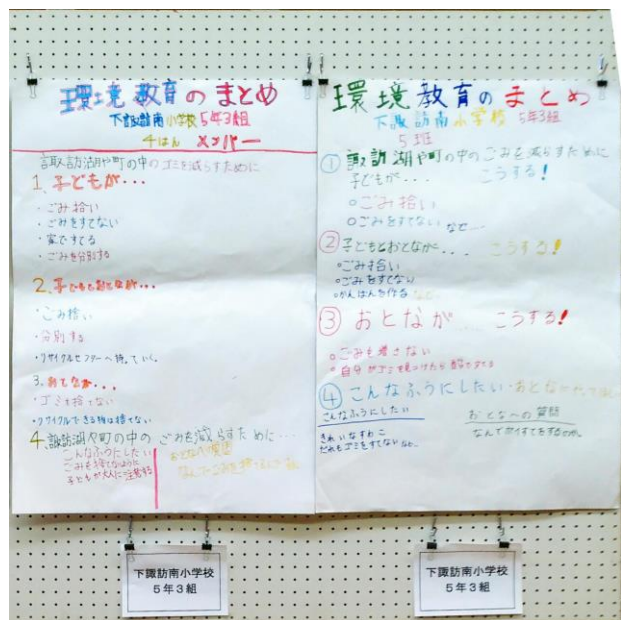 環境教育のまとめ
下諏訪南小学校 5年3組
4はん メンバー
諏訪湖や町の中のゴミを減らすために
1.子どもが・・・
・ごみ拾い
・ごみをすてない
・家ですてる
・ごみを分別する
2.子どもとおとなが・・・
・ごみ拾い
・分別する
・リサイクルセンターへ持っていく。
3.おとなが・・・
・ゴミを捨てない
・リサイクルできる物は捨てない
4.諏訪湖や町の中のごみを減らすために・・・
こんなふうにしたい
ごみを捨てないように
子どもが大人に注意する
おとなへの質問
環境教育のまとめ
下諏訪南小学校 5年3組
5班
① 諏訪湖や町の中のごみを減らすために
子どもが・・・ こうする!
○ごみ拾い
○ごみをすてない など
② 子どもとおとなが・・・・ こうする!
○ごみ拾い
○ごみをすてない
○かんばんを作る など
③ おとなが…… こうする!
○ごみを捨さない
○自分がゴミを見つけたら
④ こんなふうにしたい・おとな
こんなふうにしたい
きれいなすわこ
だれもゴミをすてない
おとなへの質問
なんでポイすてをするのか。
下諏訪南小学校
5年3組
下諏訪南小学校
5年3組